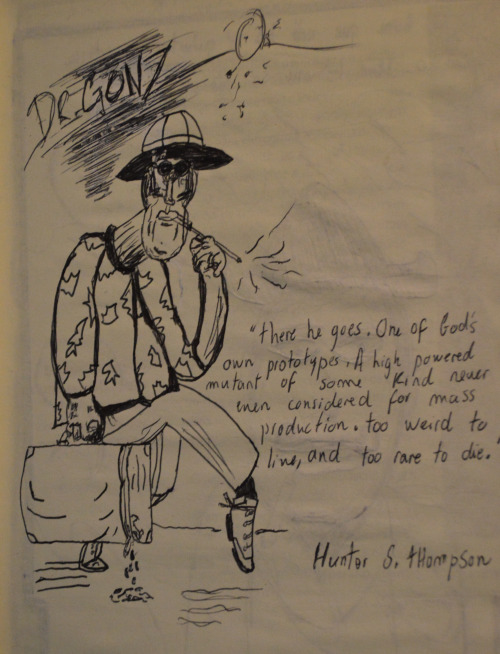 DR.GONZ
"there he goes. One of God's
own prototypes. A high powered
mutant of some kind never
even considered for mass
production. too weird to
live, and too rare to die."
Hunter S. thompson